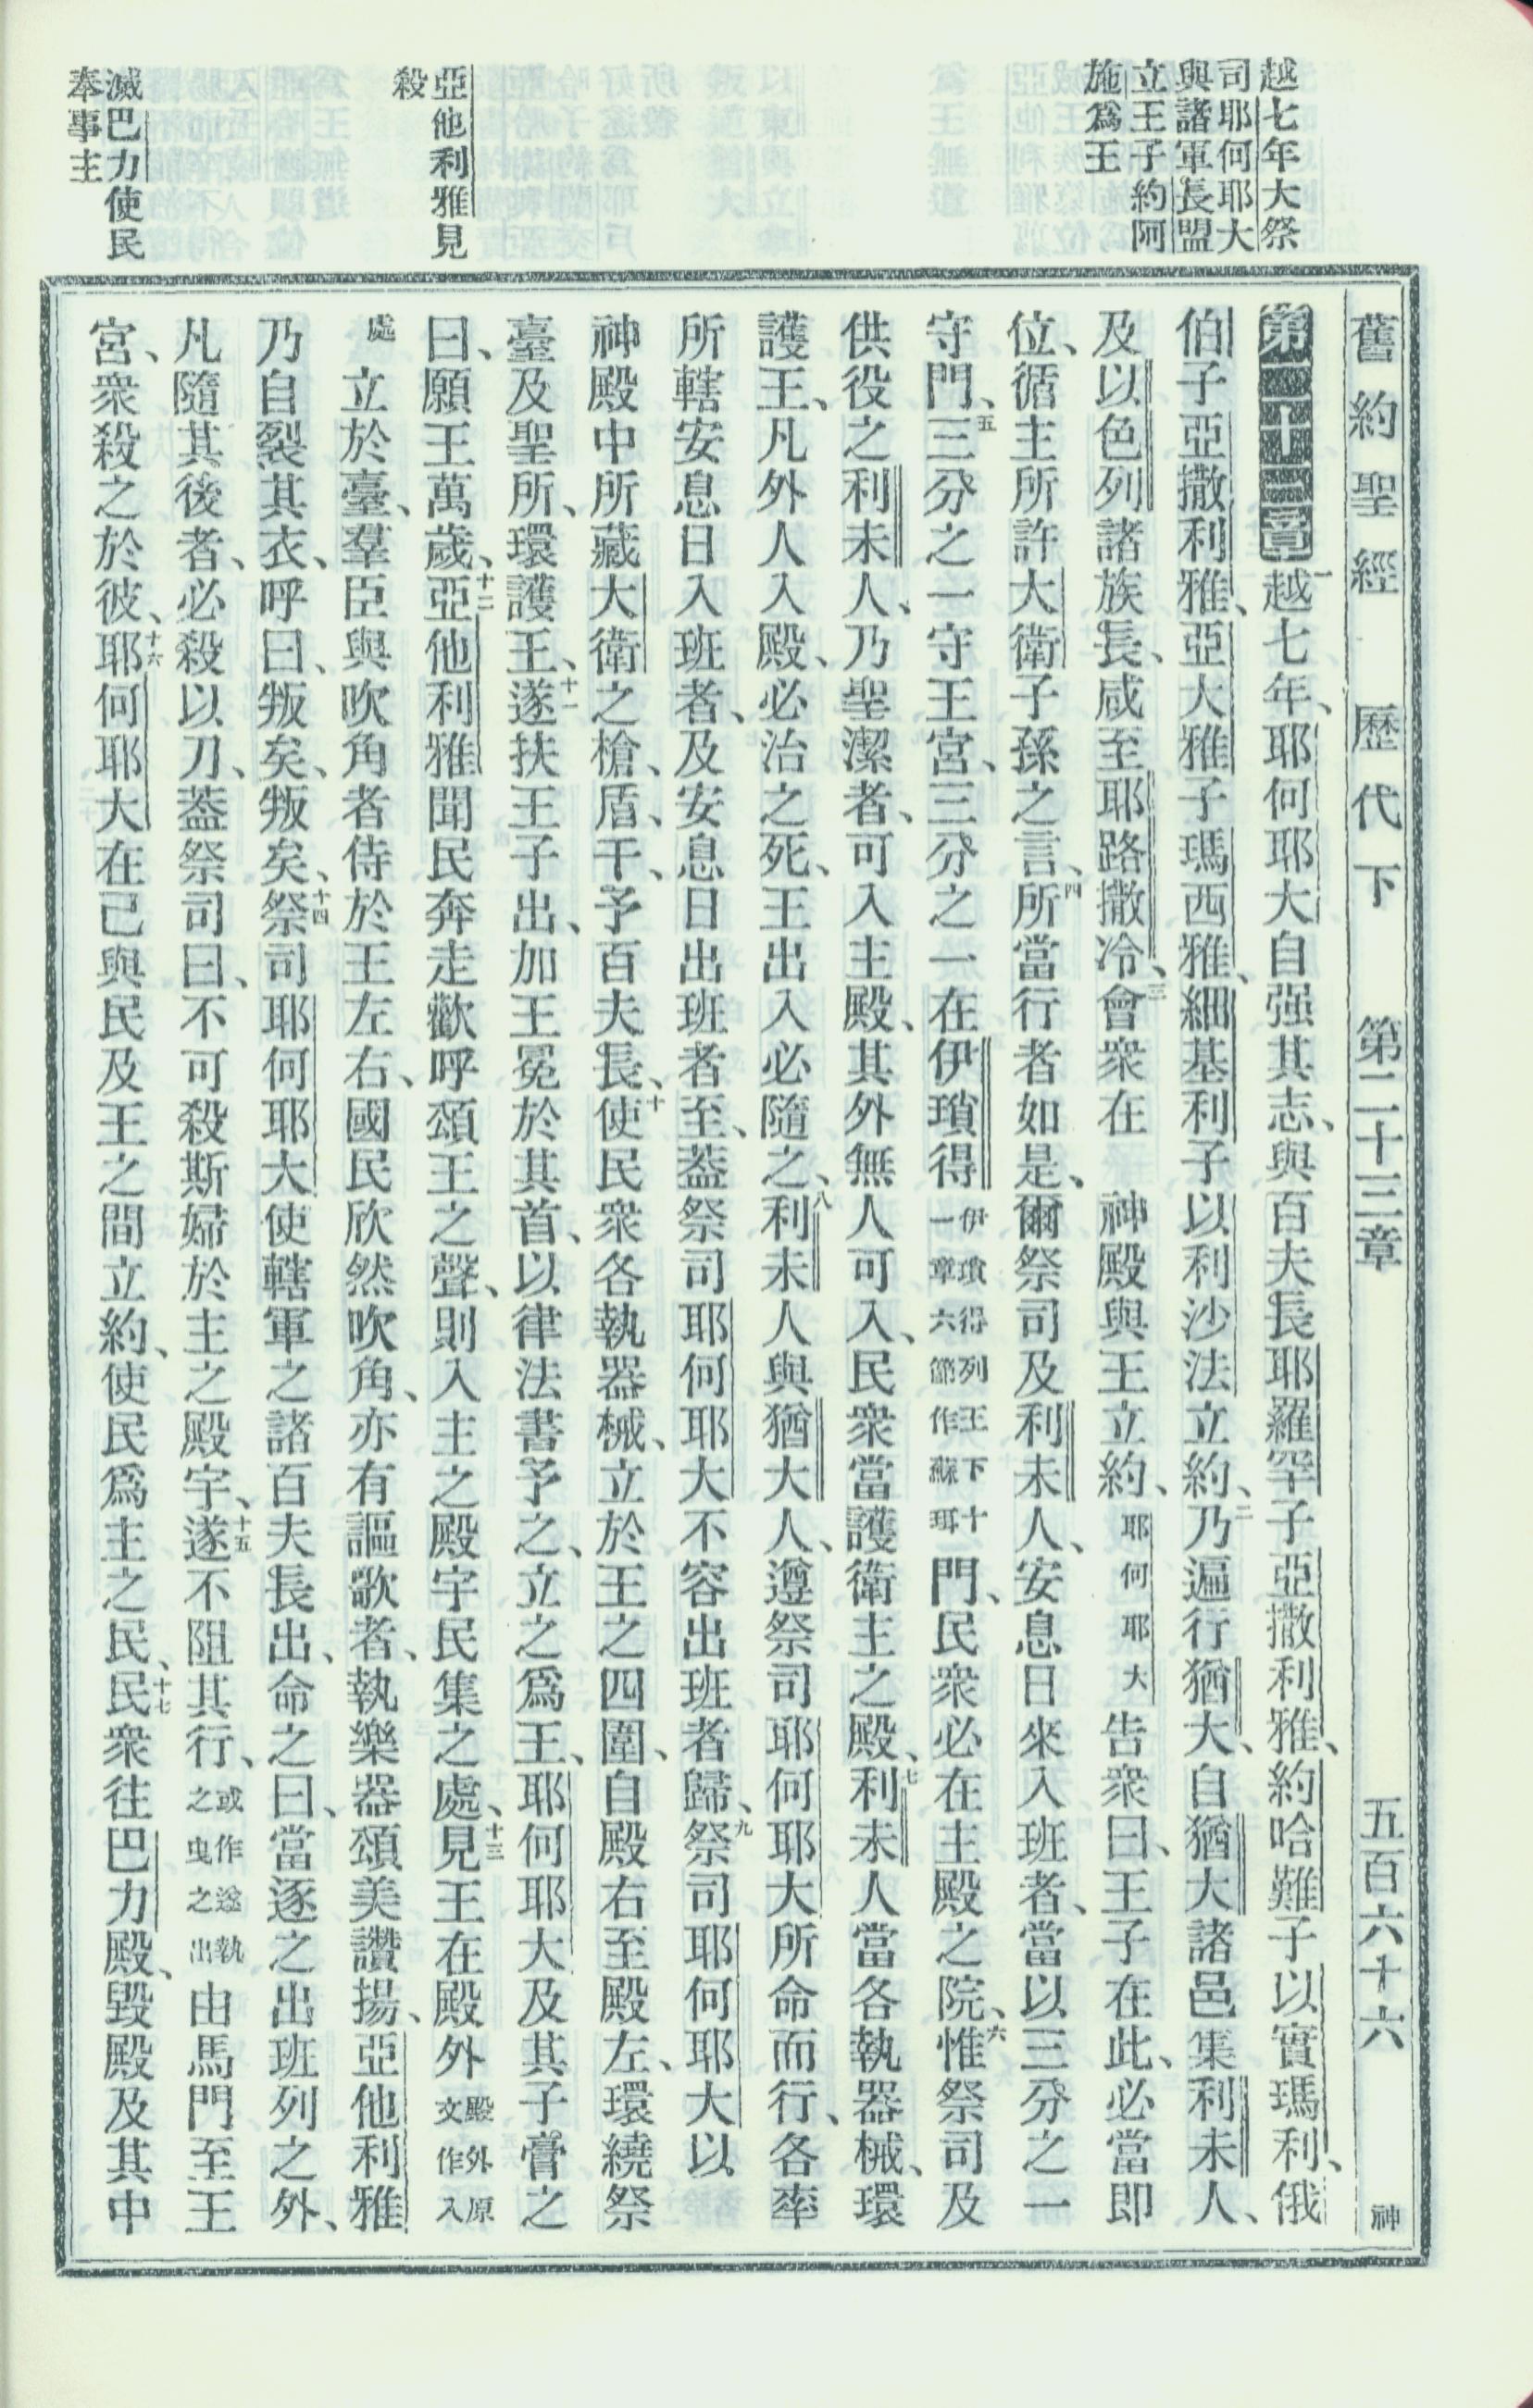 越七年大祭
司耶何耶大
與諸軍長盟
立王子約阿
施爲王
亞他利雅見
殺
滅巴力使民
奉事主
舊約聖經　歷代下　第二十三章　五百六十六　神
第二十三章一越七年、耶何耶大自强其志、與百夫長耶羅罕子亞撒利雅、約哈難子以實瑪利、俄
伯子亞撒利雅、亞大雅子瑪西雅、細基利子以利沙法立約、二乃遍行猶大、自猶大諸邑集利未人、
及以色列諸族長、咸至耶路撒冷、三會衆在　神殿與王立約、耶何耶大告衆曰、王子在此、必當即
位、循主所許大衛子孫之言、四所當行者如是、爾祭司及利未人、安息日來入班者、當以三分之一
守門、五三分之一守王宮、三分之一在伊瑣得伊瑣得列王下十一章六節作蘇珥門、民衆必在主殿之院、六惟祭司及
供役之利未人、乃聖潔者、可入主殿、其外無人可入、民衆當護衛主之殿、七利未人當各執器械、環
護王、凡外人入殿、必治之死、王出入必隨之、八利未人與猶大人、遵祭司耶何耶大所命而行、各率
所轄安息日入班者、及安息日出班者至、蓋祭司耶何耶大不容出班者歸、九祭司耶何耶大以
神殿中所藏大衛之槍、盾、干、予百夫長、十使民衆各執器械、立於王之四圍、自殿右至殿左、環繞祭
臺及聖所、環護王、十一遂扶王子出、加王冕於其首、以律法書予之、立之爲王、耶何耶大及其子膏之
曰、願王萬歲、十二亞他利雅聞民奔走歡呼頌王之聲、則入主之殿宇民集之處、十三見王在殿外殿外原文作入
處立於臺、羣臣與吹角者侍於王左右、國民欣然吹角、亦有謳歌者、執樂器頌美讚揚、亞他利雅
乃自裂其衣、呼曰、叛矣、叛矣、十四祭司耶何耶大使轄軍之諸百夫長出、命之曰、當逐之出班列之外、
凡隨其後者、必殺以刀、蓋祭司曰、不可殺斯婦於主之殿宇、十五遂不阻其行、或作遂執之曳之出由馬門至王
宮、衆殺之於彼、十六耶何耶大在己與民及王之間立約、使民爲主之民、十七民衆往巴力殿、毀殿及其中